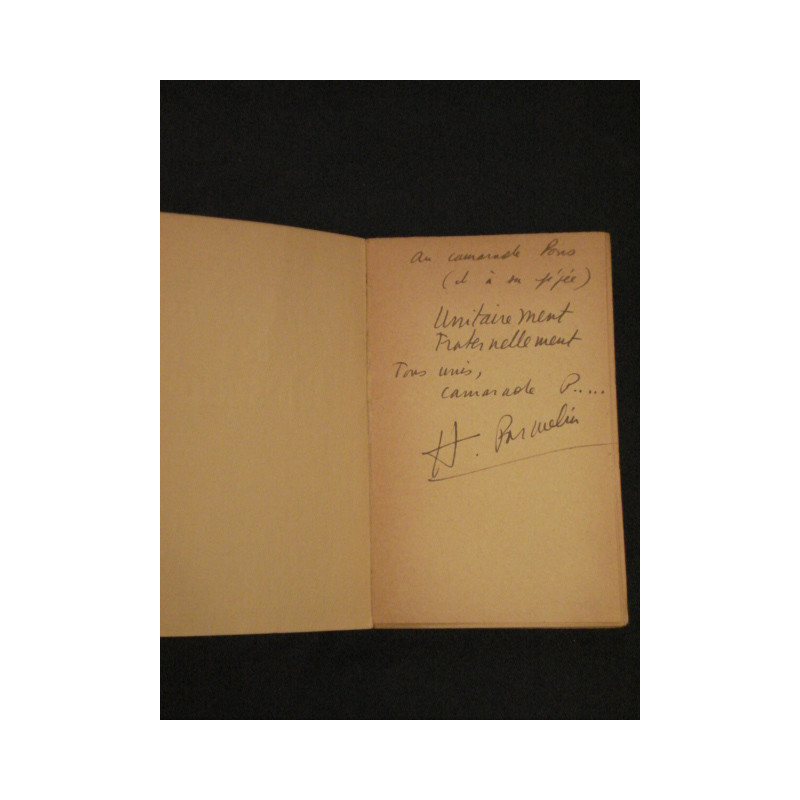 Au camarade Pons
(et à sa pépée)
Unitairement
Fraternellement
Tous unis,
camarade P.....
H. Parmelin